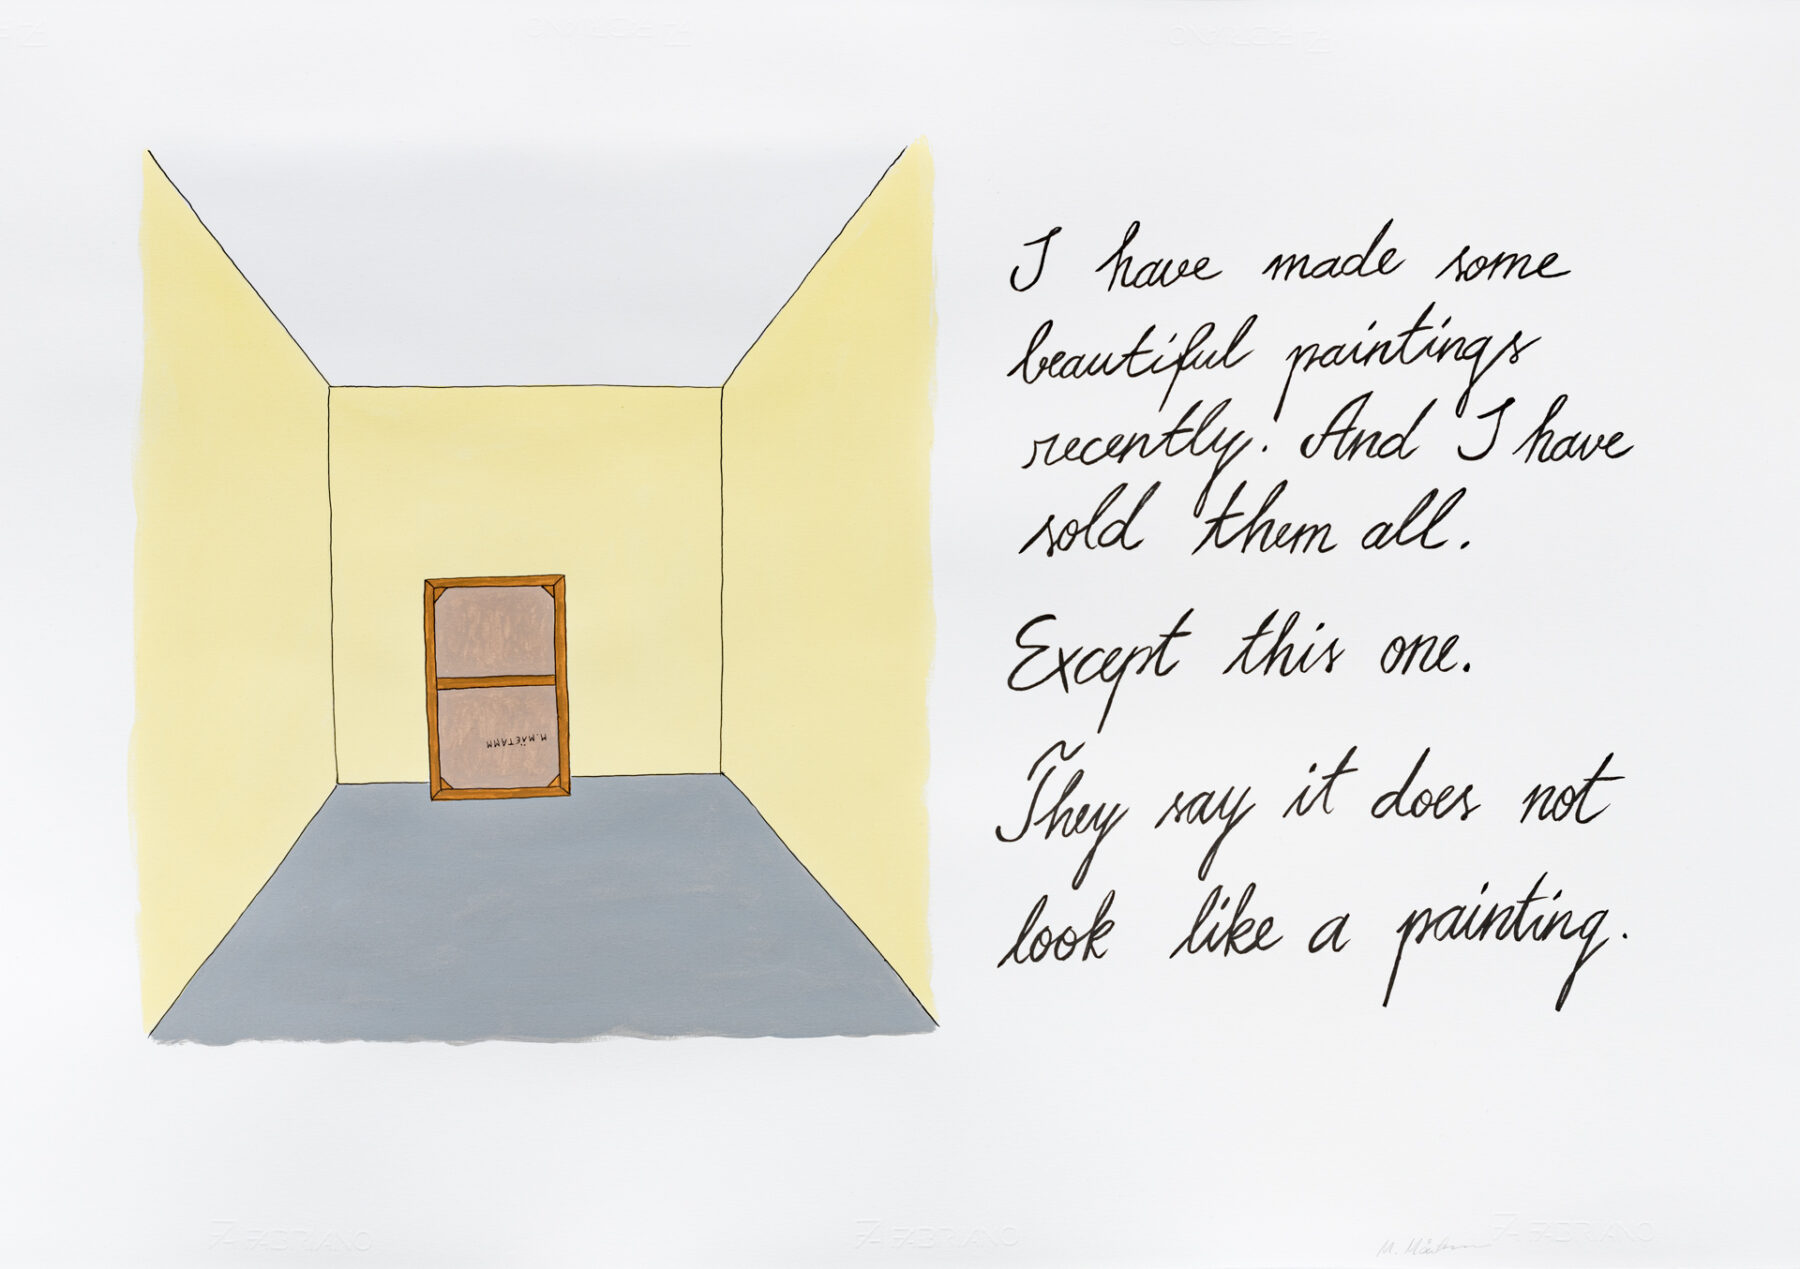 I have made some
beautiful paintings
recently. And I have
sold them all.
Except this one.
They say it does not
look like a painting.
M. MÄETAMM
FABRIANO
FABRIANO
FABRIANO
FABRIANO
FABRIANO